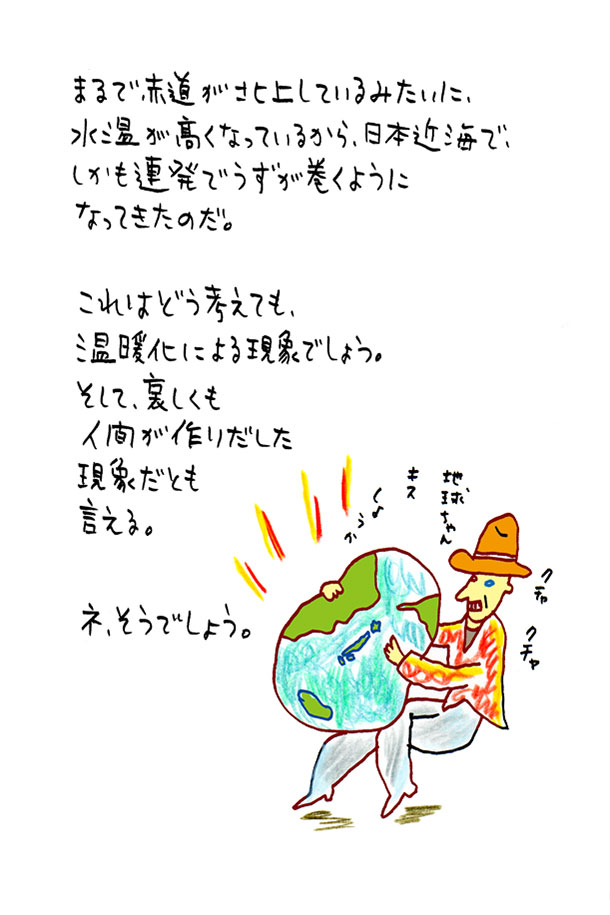 まるで、赤道が北上しているみたいに、
水温が高くなっているから、日本近海で、
しかも連発でうずが巻くように
なってきたのだ。
これはどう考えても、
温暖化による現象でしょう。
そして、哀しくも
人間が作りだした
現象だとも
言える。
ネ、そうでしょう。
地球ちゃん
キス
クチャ
クチャ